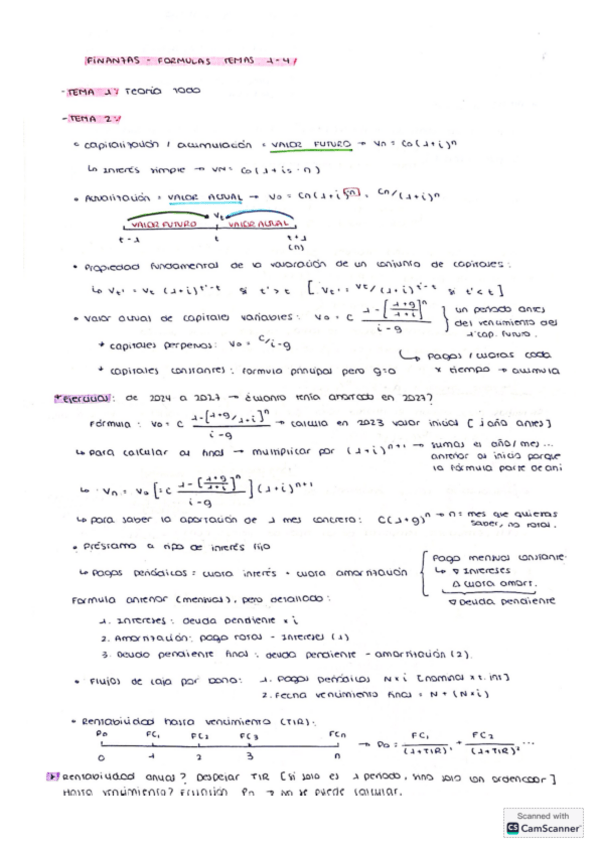 FINANZAS - FORMULAS TEMAS 1-4/
- TEMA 1/ Teoría todo
- TEMA 2/
• Capitalización / acumulación = VALOR FUTURO → Vn = Co (1+i)^n
↳ Interés simple → VN = Co (1 + is · n)
• Actualización = VALOR ACTUAL → Vo = Cn (1+i)^-n = Cn/(1+i)^n
VALOR FUTURO Vt VALOR ACTUAL
t-1 t t+1
(n)
• Propiedad fundamental de la valoración de un conjunto de capitales:
↳ Vt' = Vt (1+i)^t'-t si t' > t [ Vt' = Vt/(1+i)^t'-t si t' < t ]
• Valor actual de capitales variables: Vo = C (1-[(1+g)/(1+i)]^n)/(i-g) } un periodo antes del vencimiento del 1º cap. futuro.
* capitales perpetuos: Vo = C/i-g
↳ Pagos / cuotas cada x tiempo → acumula
* capitales constantes: formula principal pero g=0
* Ejercicios: de 2024 a 2027 → ¿cuánto tenía ahorrado en 2027?
Fórmula: Vo = C (1-[1+g/1+i]^n)/(i-g) → calcula en 2023 valor inicial [1 año antes]
↳ para calcular al final → multiplicar por (1+i)^n+1 → sumas el año/mes... anterior al inicio porque la fórmula parte de ahí
↳ Vn = Vo [= C (1-[(1+g)/(1+i)]^n)/(i-g)] (1+i)^n+1
↳ para saber la aportación de 1 mes concreto: C(1+g)^n → n = mes que quieras saber, no total.
• Préstamo a tipo de interés fijo
↳ Pagos periódicos = cuota interés + cuota amortización { Pago mensual constante.
↳ ∇ Intereses
Δ cuota amort.
∇ Deuda pendiente
Formula anterior (mensual), pero detallado:
1. Intereses: deuda pendiente × i
2. Amortización: pago total - intereses (1)
3. Deuda pendiente final: deuda pendiente - amortización (2).
• Flujos de caja por bono: 1. Pagos periódicos N×i [nominal × t. int]
2. Fecha vencimiento final = N + (N×i)
• Rentabilidad hasta vencimiento (TIR):
Po FC1 FC2 FC3 FCn
0 1 2 3 n
→ Po = FC1/(1+TIR)^1 + FC2/(1+TIR)^2 ...
Rentabilidad anual? Despejar TIR [si solo es 1 periodo, sino solo con ordenador]
Hasta vencimiento? Pn → no se puede calcular.
Scanned with
CS CamScanner